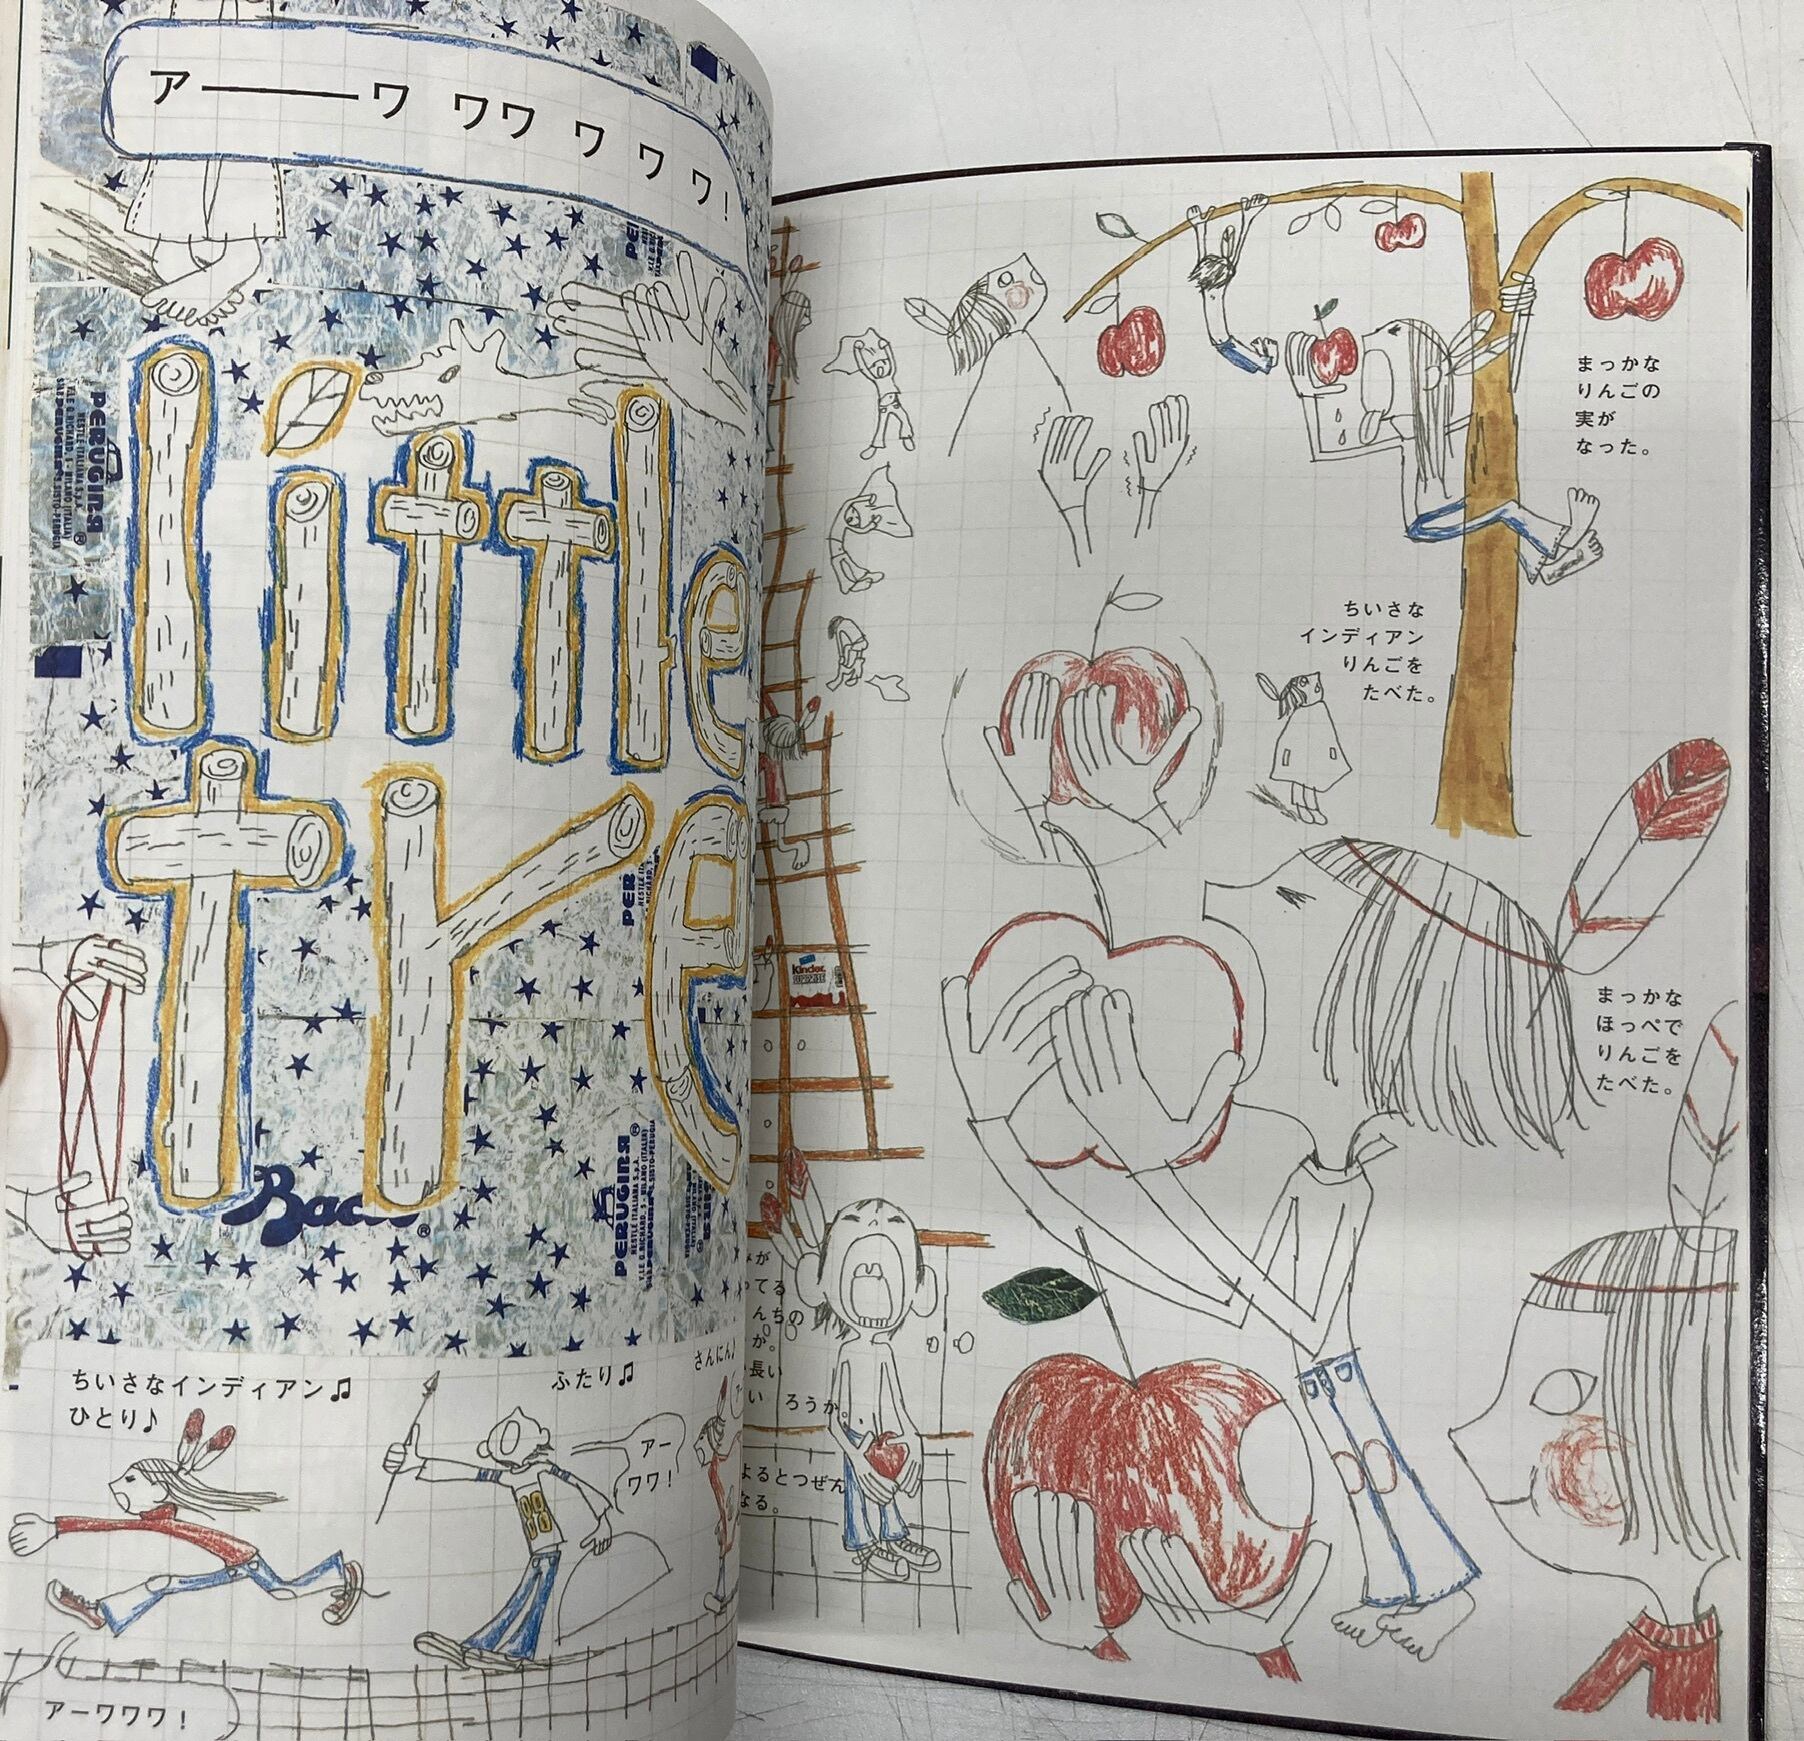 ア――ワ ワワ ワ ワ ワ!
little
tre
PERUGINA®
NESTLE ITALIANA S.p.A.
PERUGINA®
Baci®
Kinder
ちいさなインディアン♫
ひとり♪
ふたり♫
さんにん♪
アー
ワワ!
アーワワワ!
まっかな
りんごの
実が
なった。
ちいさな
インディアン
りんごを
たべた。
まっかな
ほっぺで
りんごを
たべた。
が
てる
んちの
か。
長い
い ろうか。
よるとつぜん
なる。